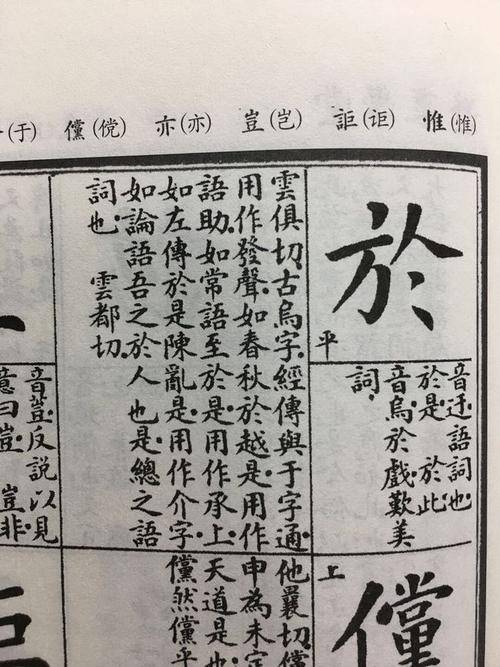 (于) 儻(傥) 亦(亦) 豈(岂) 詎(讵) 惟(惟)
於
平
音迂語詞也
於是 於此
音烏於戲歎美
詞
雲俱切古烏字經傳與于字通
用作發聲如春秋於越是用作
語助如常語至於是用作承上
如左傳於是陳亂是用作介字
如論語吾之於人也是總之語
詞也 雲都切
儻
上
他曩切儻
申為未定
天道是也
儻然儻平
反說以見
意曰豈 豈非